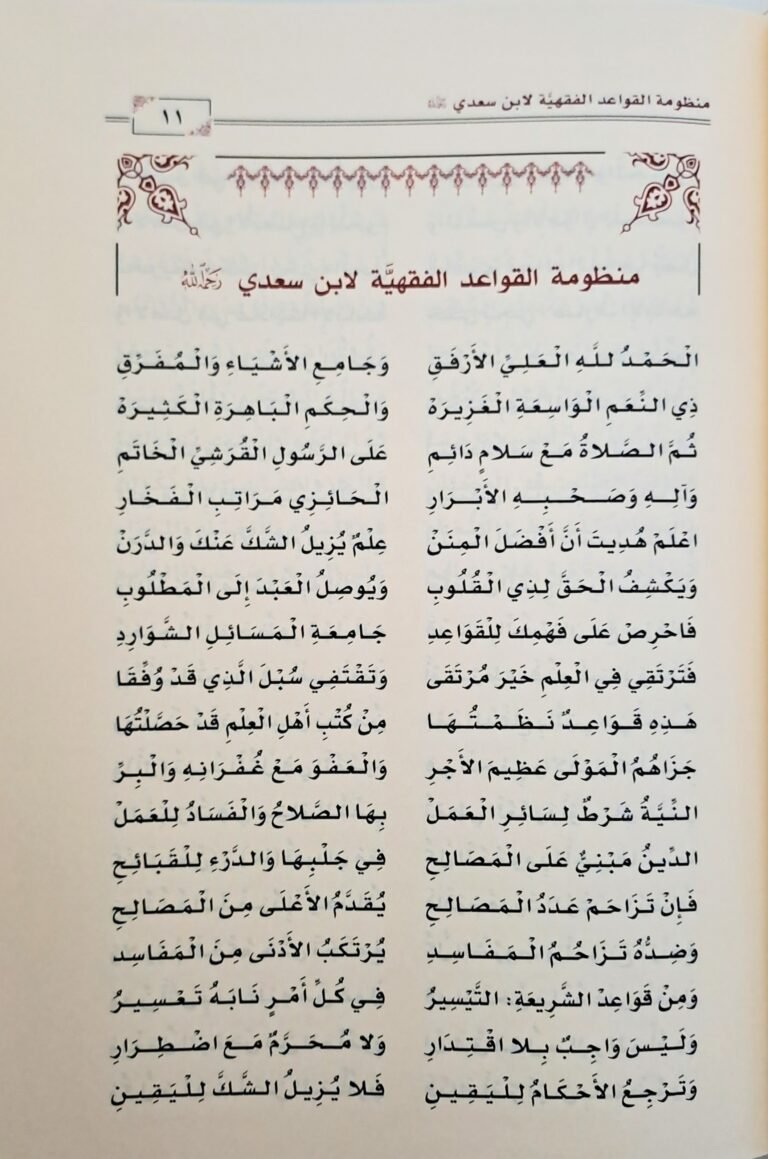 منظومة القواعد الفقهيَّة لابن سعدي رَحِمَهُ اللهُ
١١
منظومة القواعد الفقهيَّة لابن سعدي رَحِمَهُ اللهُ
الْحَمْدُ للَّهِ الْعَلِيِّ الأَرْفَقِ وَجَامِعِ الأَشْيَاءِ وَالْمُفَرِّقِ
ذِي النِّعَمِ الْوَاسِعَةِ الْغَزِيرَهْ وَالْحِكَمِ الْبَاهِرَةِ الْكَثِيرَهْ
ثُمَّ الصَّلاةُ مَعْ سَلامٍ دَائِمِ عَلَى الرَّسُولِ الْقُرَشِيِّ الْخَاتَمِ
وَآلِهِ وَصَحْبِهِ الأَبْرَارِ الْحَائِزِي مَرَاتِبِ الْفَخَارِ
اعْلَمْ هُدِيتَ أَنَّ أَفْضَلَ الْمِنَنْ عِلْمٌ يُزِيلُ الشَّكَّ عَنْكَ وَالدَّرَنْ
وَيَكْشِفُ الْحَقَّ لِذِي الْقُلُوبِ وَيُوصِلُ الْعَبْدَ إِلَى الْمَطْلُوبِ
فَاحْرِصْ عَلَى فَهْمِكَ لِلْقَوَاعِدِ جَامِعَةِ الْمَسَائِلِ الشَّوَارِدِ
فَتَرْتَقِي فِي الْعِلْمِ خَيْرَ مُرْتَقَى وَتَقْتَفِي سُبْلَ الَّذِي قَدْ وُفِّقَا
هَذِهِ قَوَاعِدٌ نَظَمْتُهَا مِنْ كُتْبِ أَهْلِ الْعِلْمِ قَدْ حَصَّلْتُهَا
جَزَاهُمُ الْمَوْلَى عَظِيمَ الأَجْرِ وَالْعَفْوَ مَعْ غُفْرَانِهِ وَالْبِرِّ
النِّيَّةُ شَرْطٌ لِسَائِرِ الْعَمَلْ بِهَا الصَّلاحُ وَالْفَسَادُ لِلْعَمَلْ
الدِّينُ مَبْنِيٌّ عَلَى الْمَصَالِحِ فِي جَلْبِهَا وَالدَّرْءِ لِلْقَبَائِحِ
فَإِنْ تَزَاحَمْ عَدَدُ الْمَصَالِحِ يُقَدَّمُ الأَعْلَى مِنَ الْمَصَالِحِ
وَضِدُّهُ تَزَاحُمُ الْمَفَاسِدِ يُرْتَكَبُ الأَدْنَى مِنَ الْمَفَاسِد
وَمِنْ قَوَاعِدْ الشَّرِيعَةِ: التَّيْسِيرُ فِي كُلِّ أَمْرٍ نَابَهُ تَعْسِيرُ
وَلَيْسَ وَاجِبٌ بِلا اقْتِدَارِ وَلا مُحَرَّمٌ مَعَ اضْطِرَارِ
وَتَرْجِعُ الأَحْكَامُ لِلْيَقِينِ فَلا يُزِيلُ الشَّكُّ لِلْيَقِينِ